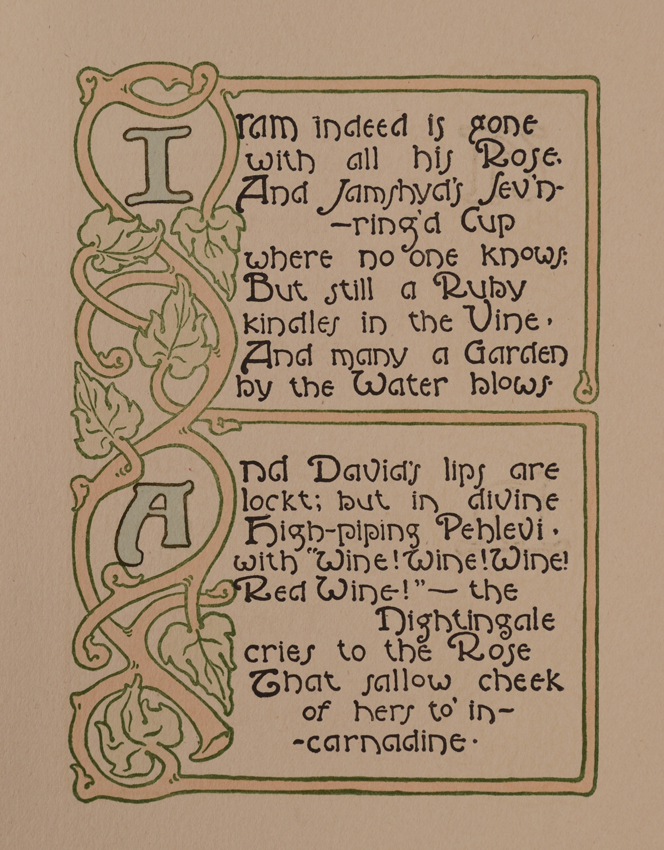 Iram indeed is gone
with all his Rose,
And Jamshyd's Sev'n-
-ring'd Cup
where no one knows;
But still a Ruby
kindles in the Vine,
And many a Garden
by the Water blows.
And David's lips are
lockt; but in divine
High-piping Pehlevi,
with "Wine! Wine! Wine!
Red Wine!"— the
Nightingale
cries to the Rose
That sallow cheek
of hers to' in-
-carnadine.